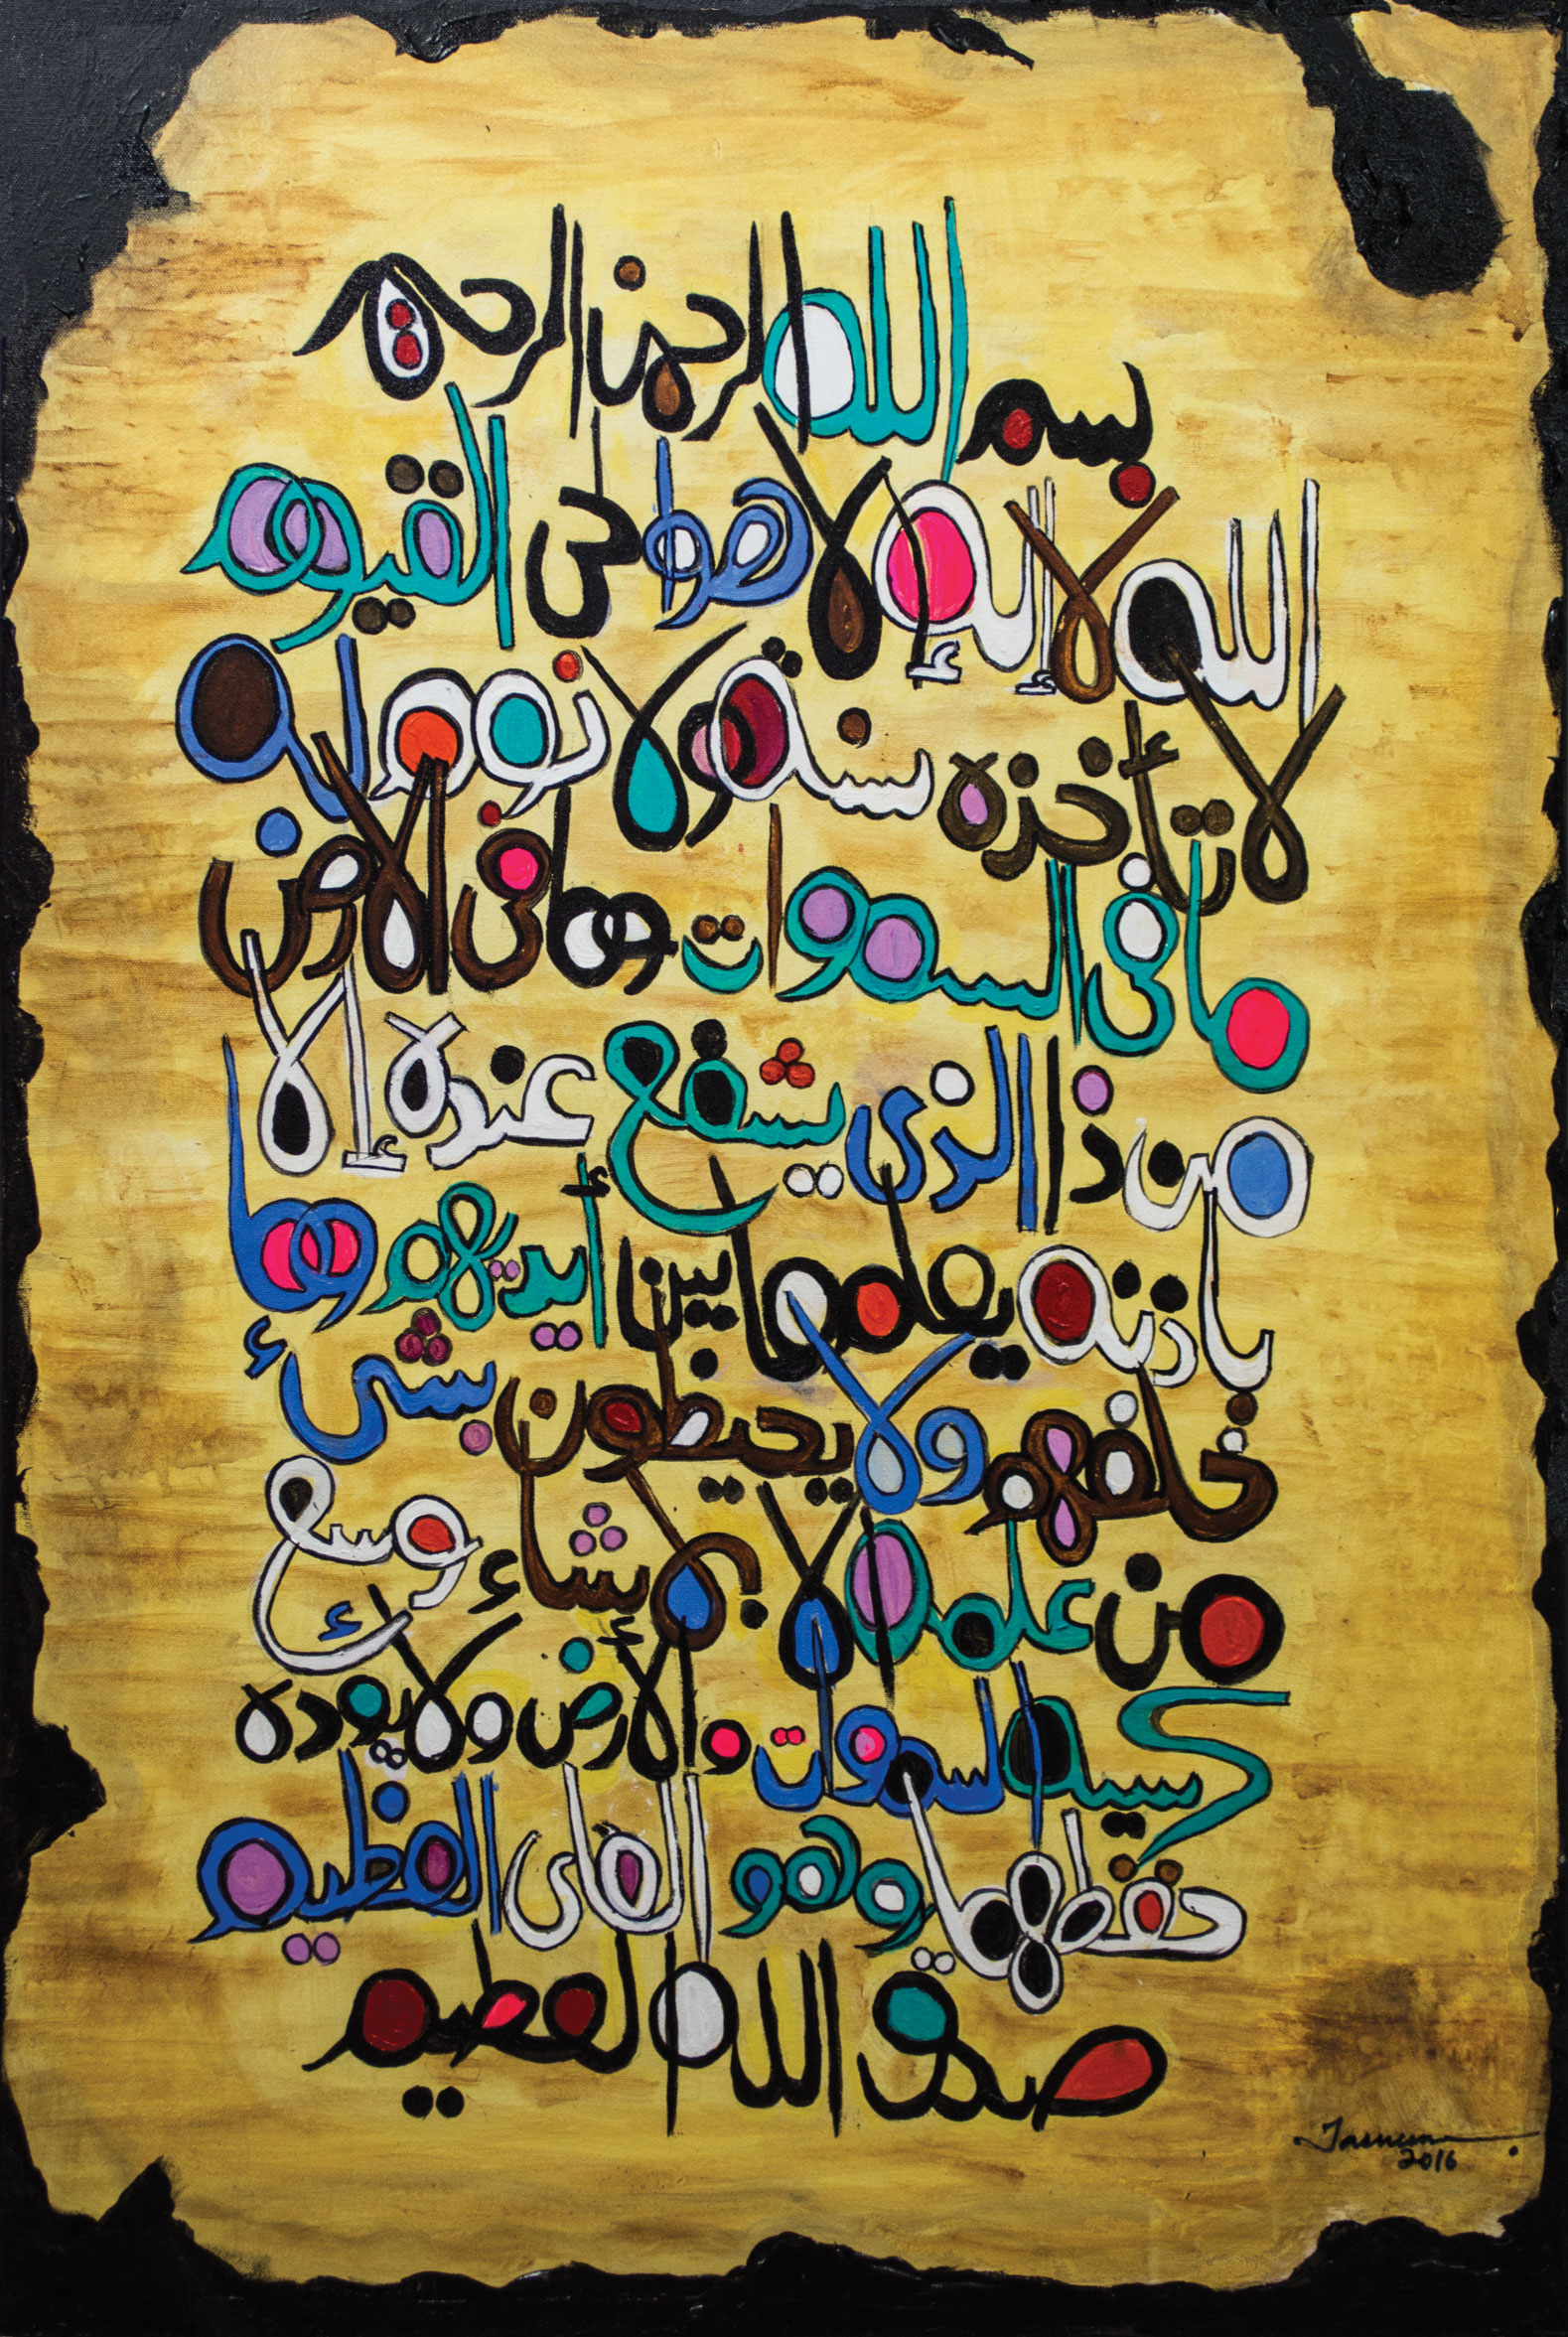 بسم الله الرحمن الرحيم
الله لا إله إلا هو الحى القيوم
لا تأخذه سنة ولا نوم له
ما فى السموات وما فى الارض
من ذا الذى يشفع عنده إلا
باذنه يعلم ما بين أيديهم وما
خلفهم ولا يحيطون بشىء
من علمه الا بما شاء وسع
كرسيه السموات والأرض ولا يوده
حفظهما وهو العلى العظيم
صدق الله العظيم
Tasneem
2016